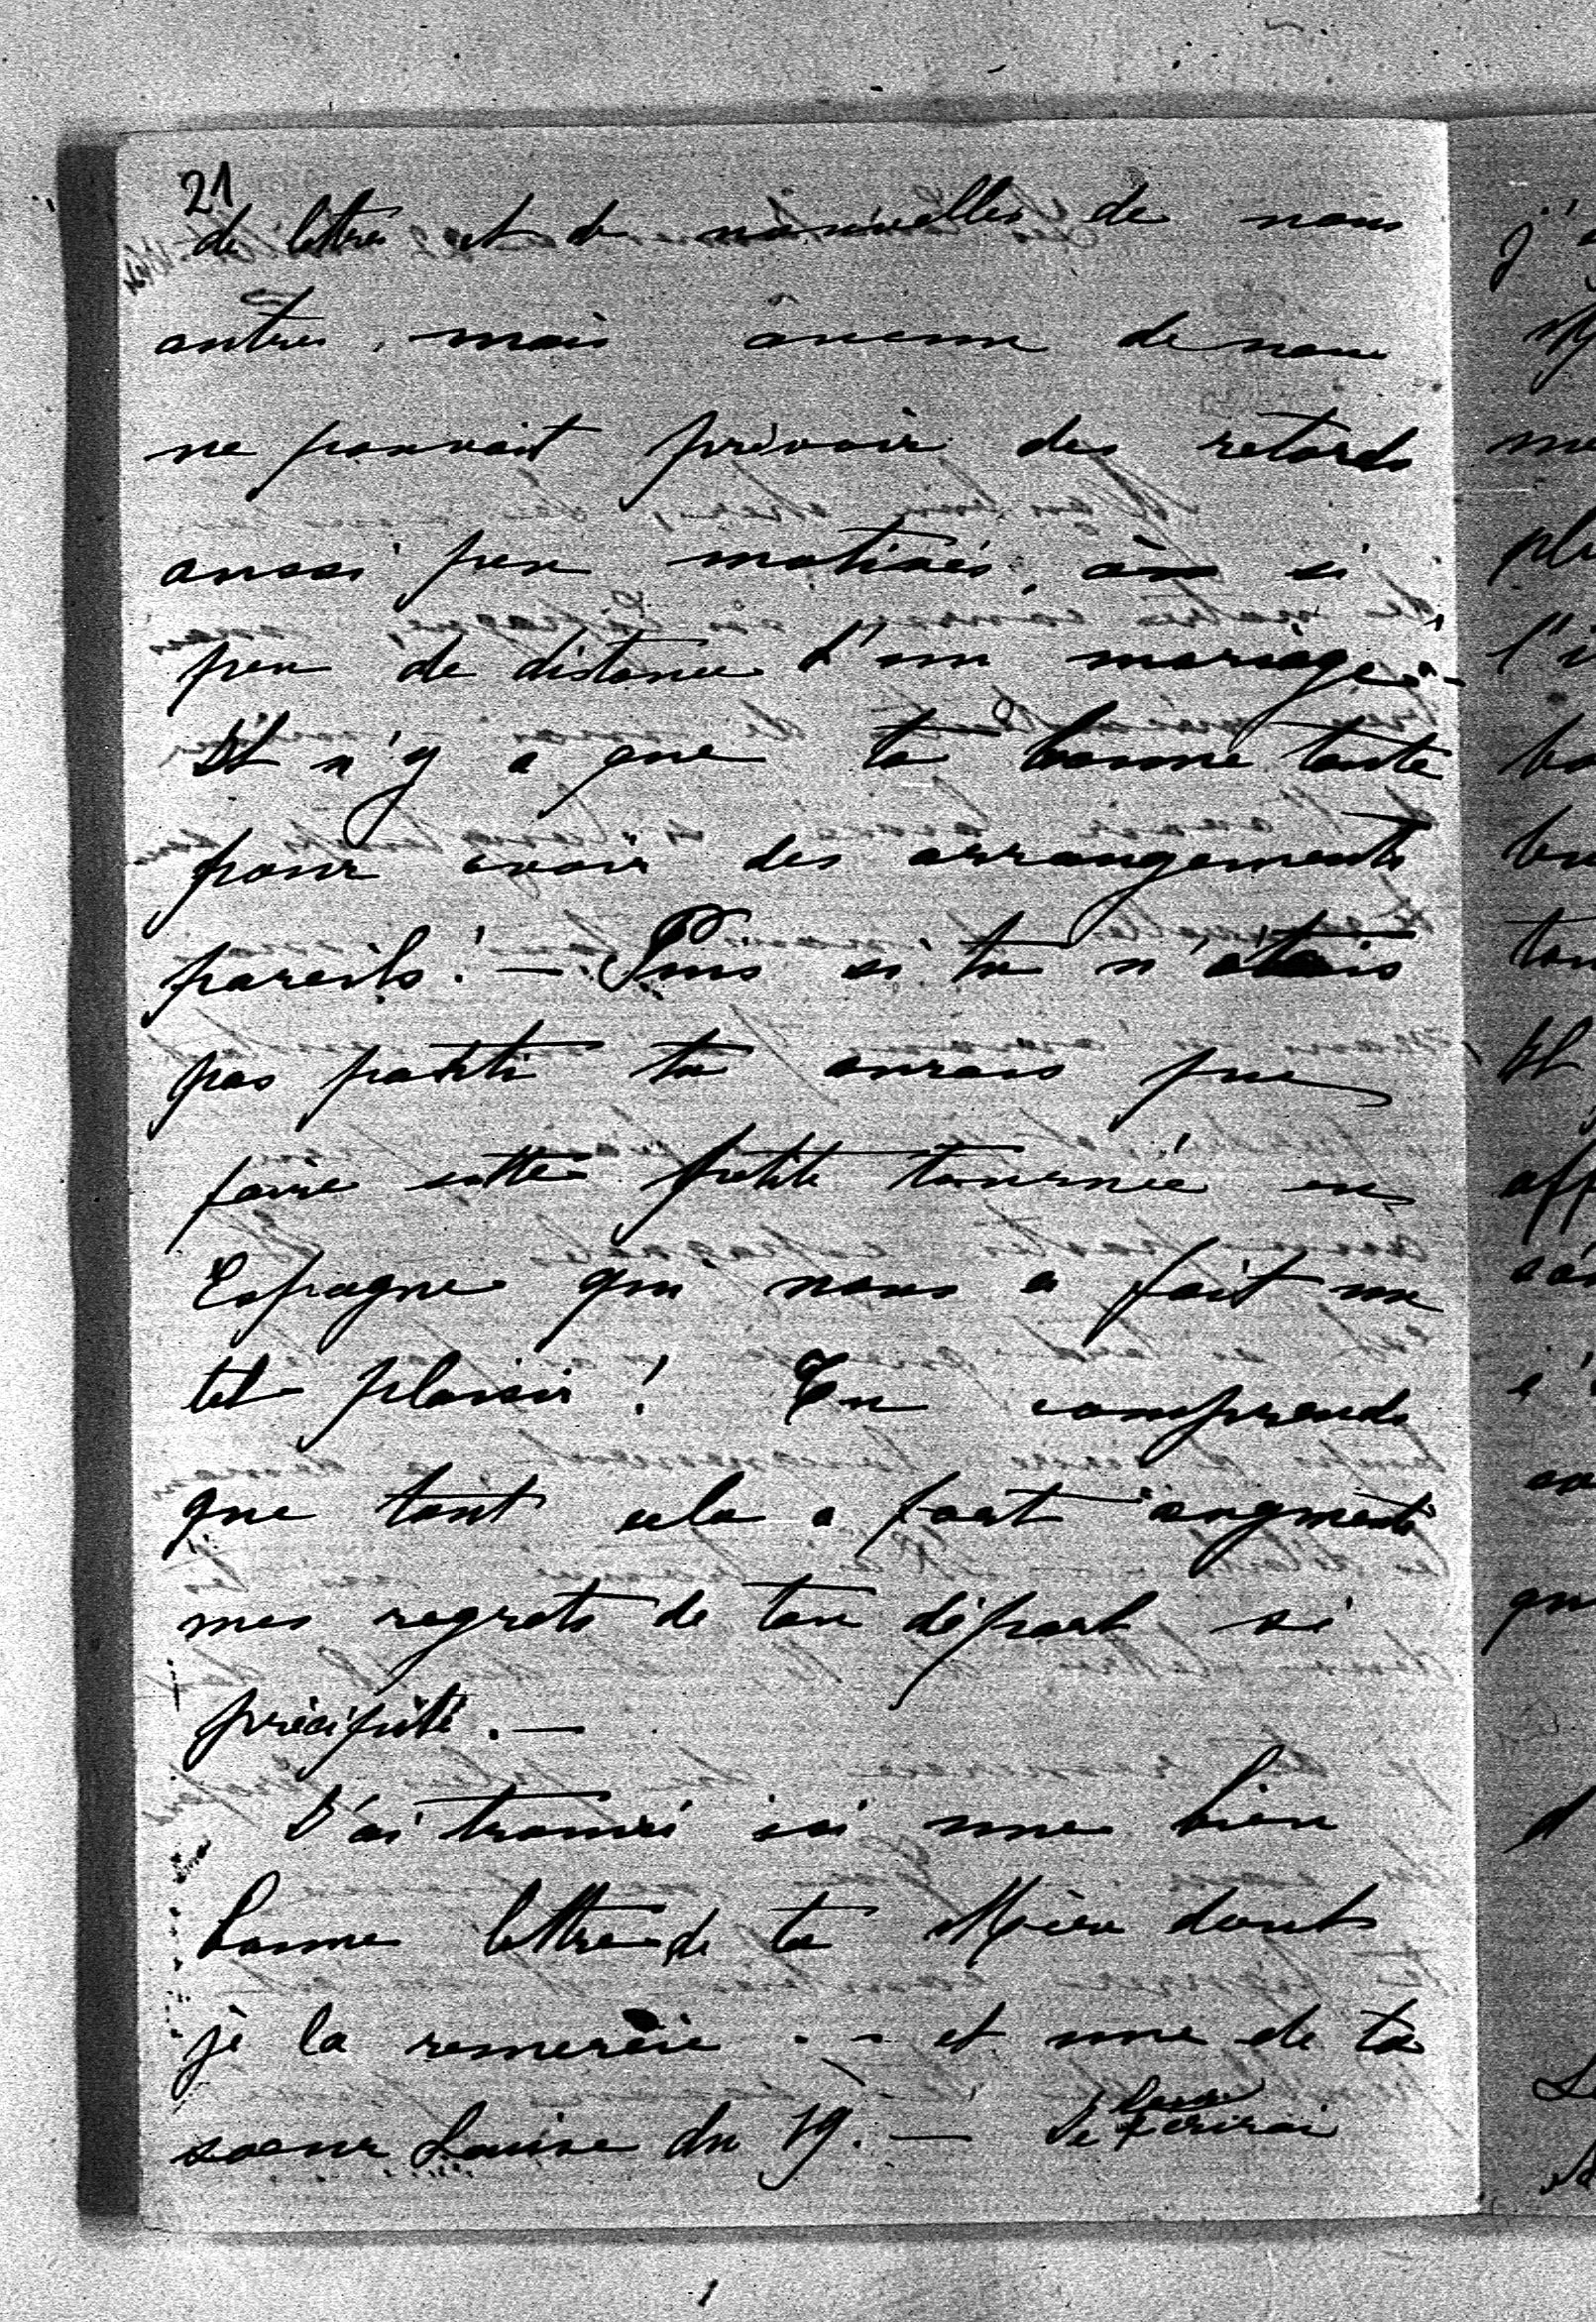 21
de lettres et de nouvelles de nous
autres, mais aucun de nous
ne pouvait prévoir des retards
aussi peu motivés, à si
peu de distance d'un mariage. -
Il n'y a que ta bonne tante
pour avoir des arrangements
pareils ! — Puis si tu n'étais
pas parti tu aurais pu
faire cette petite tournée en
Espagne qui nous a fait un
tel plaisir ! Tu comprends
que tout cela a fort augmenté
mes regrets de ton départ si
précipité. —
J'ai trouvé ici une bien
bonne lettre de ta Mère dont
je la remercie . - et une de ta
soeur Louise du 19. — Je leur écrirai